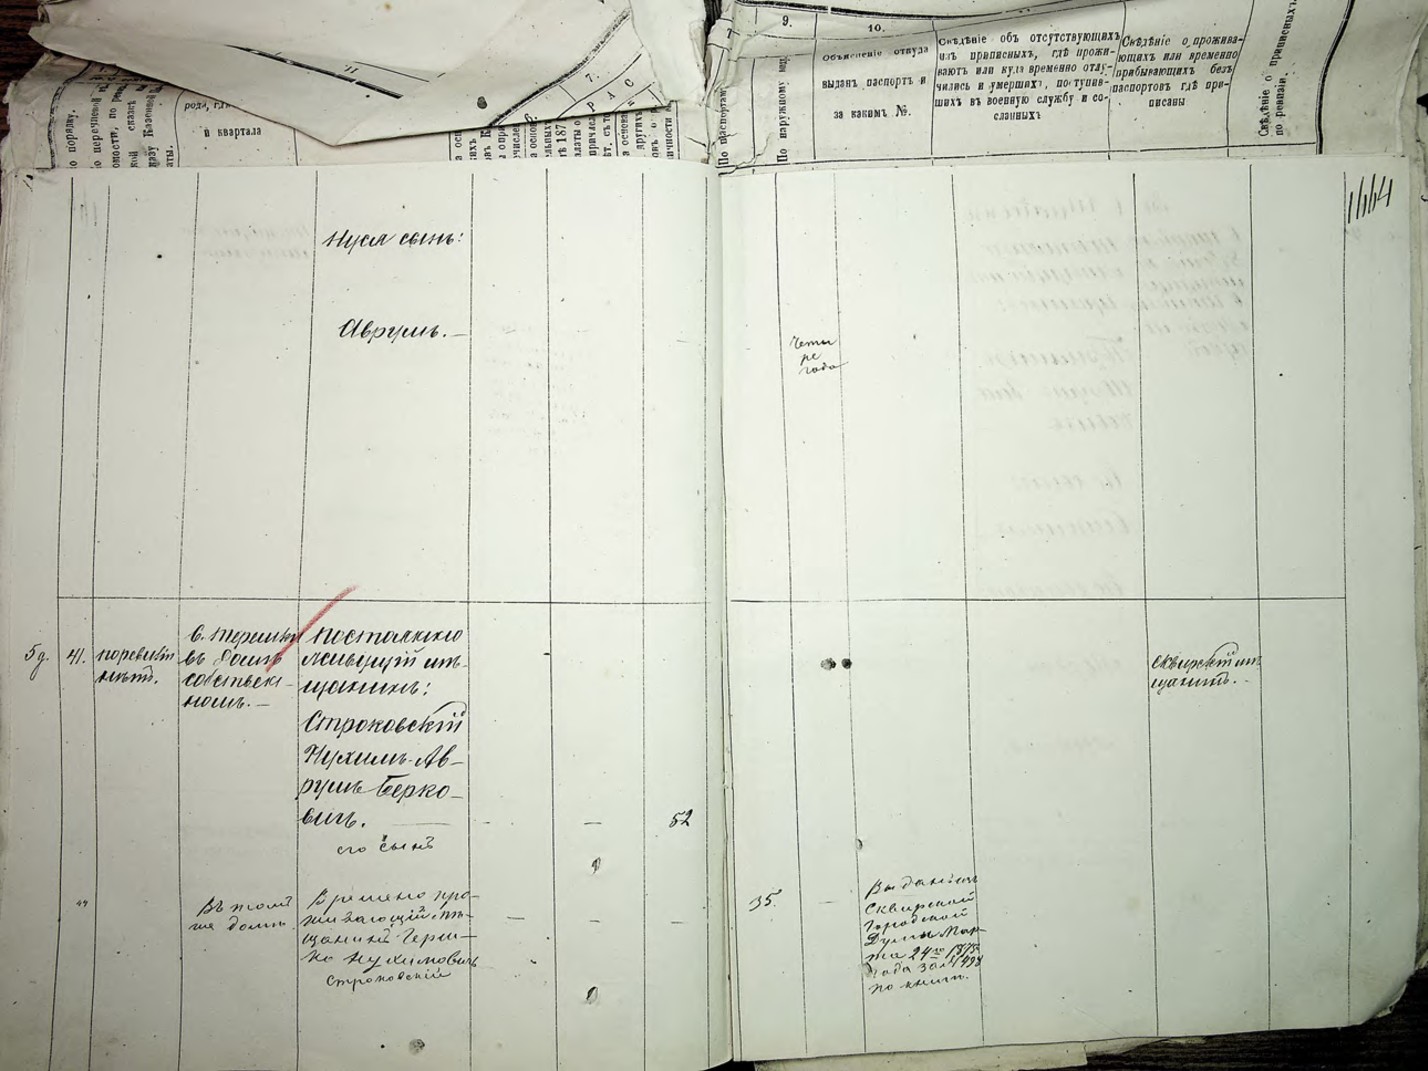 9.
10.
7.
6.
11
Объясненіе откуда
выданъ паспортъ и
за какимъ №.
Свѣдѣніе объ отсутствующихъ
изъ приписныхъ, гдѣ прожи-
ваютъ или куда временно отлу-
чились и умершихъ, поступив-
шихъ въ военную службу и со-
сланныхъ
Свѣдѣніе о прожива-
ющихъ или временно
прибывающихъ безъ
паспортовъ гдѣ при-
писаны
Свѣдѣніе о приписныхъ
по ревизіи.
По паспортамъ
По наружному
и квартала
1664
Нусл сынъ:
Аврумъ.—
Четы
ре
года
5д.
41.
въ домѣ
собствен-
номъ.—
Постоянно
живущій мѣ-
щанинъ:
Строковскій
Нухимъ-Ав-
румъ Берко-
вичъ.
52
его сынъ
Сквирскій мѣ
щанинъ.—
"
Въ томъ
же домѣ
Времено про-
живающій мѣ-
щанинъ Герш-
ко Нухимовичъ
Строковскій
35.
Выданъ изъ
Сквирской
Городской
Думы Мар-
та 24го 1875
года за №1498
по книгѣ.